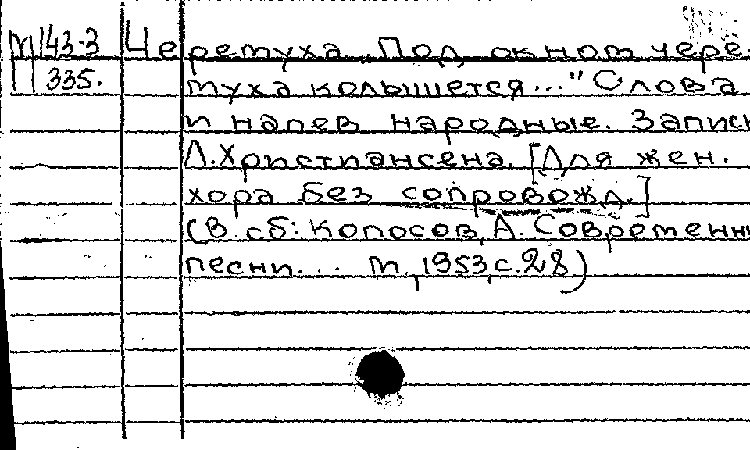 М143-3 Черемуха „Под окном чере
335. муха колышется..." Слова
и напев народные. Запись
Л.Христиансена. [Для жен.
хора без сопровожд.]
(В сб: Колосов, А. Современн
песни... М., 1953, с.28)